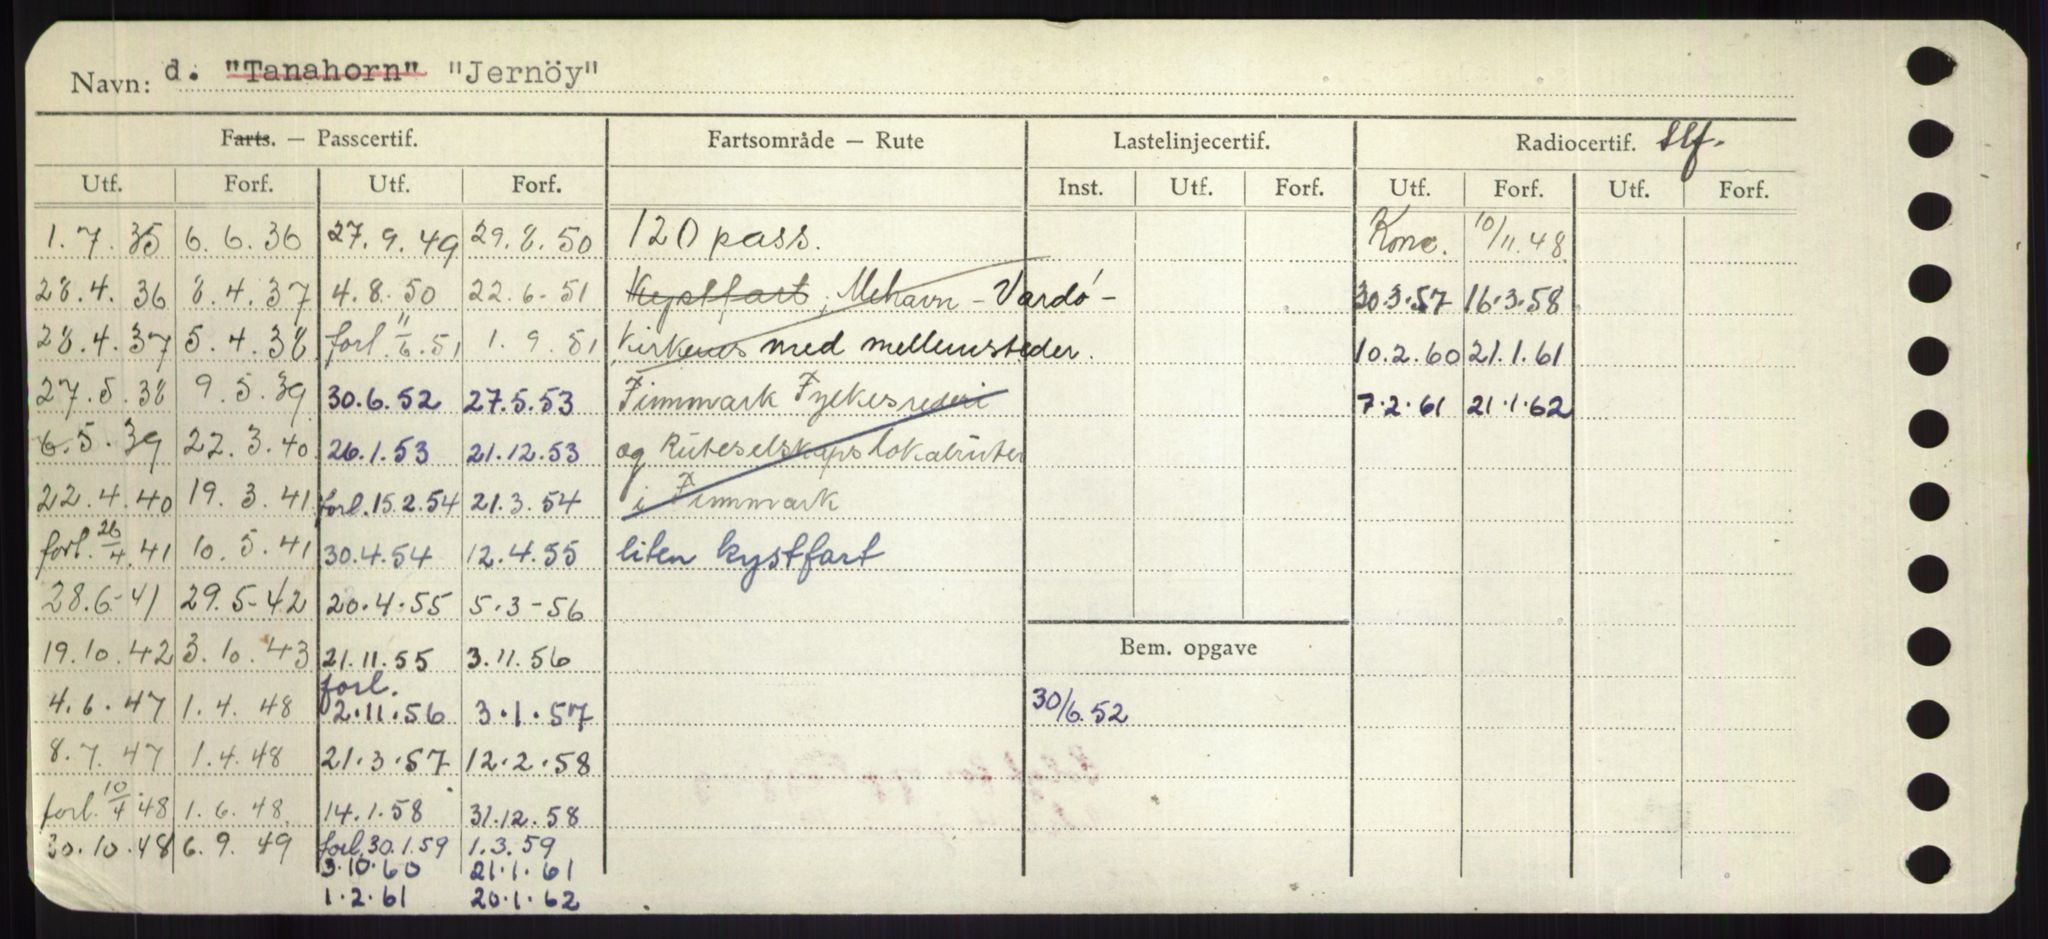 Navn: d. "Tanahorn" "Jernöy"
Farts. — Passcertif. Fartsområde — Rute Lastelinjecertif. Radiocertif. Slf.
Utf. Forf. Utf. Forf. Inst. Utf. Forf. Utf. Forf. Utf. Forf.
1. 7. 35 6. 6. 36 27. 9. 49 29. 8. 50 120 pass. Konc. 10/11.48
28. 4. 36 8. 4. 37 4. 8. 50 22. 6. 51 Kystfart, Mehavn - Vardö - 30.3.57 16.3.58
28. 4. 37 5. 4. 38 forl. 11/6. 51 1. 9. 51 Kirkenes med mellemsteder. 10.2.60 21.1.61
27. 5. 38 9. 5. 39 30.6.52 27.5.53 Finnmark Fylkesrederi 7.2.61 21.1.62
6. 5. 39 22. 3. 40 26.1.53 21.12.53 og Ruteselskaps lokalruter
22. 4. 40 19. 3. 41 forl. 15.2.54 21.3.54 i Finnmark
forl. 26/4. 41 10. 5. 41 30.4.54 12.4.55 liten kystfart
28.6-41 29.5-42 20.4.55 5.3-56
19.10.42 3.10.43 21.11.55 3.11.56 Bem. opgave
forl.
4.6.47 1.4.48 2.11.56 3.1.57 30/6.52
8.7.47 1.4.48 21.3.57 12.2.58
forl. 10/4.48 1.6.48. 14.1.58 31.12.58
30.10.48 6.9.49 forl. 30.1.59 1.3.59
3.10.60 21.1.61
1.2.61 20.1.62